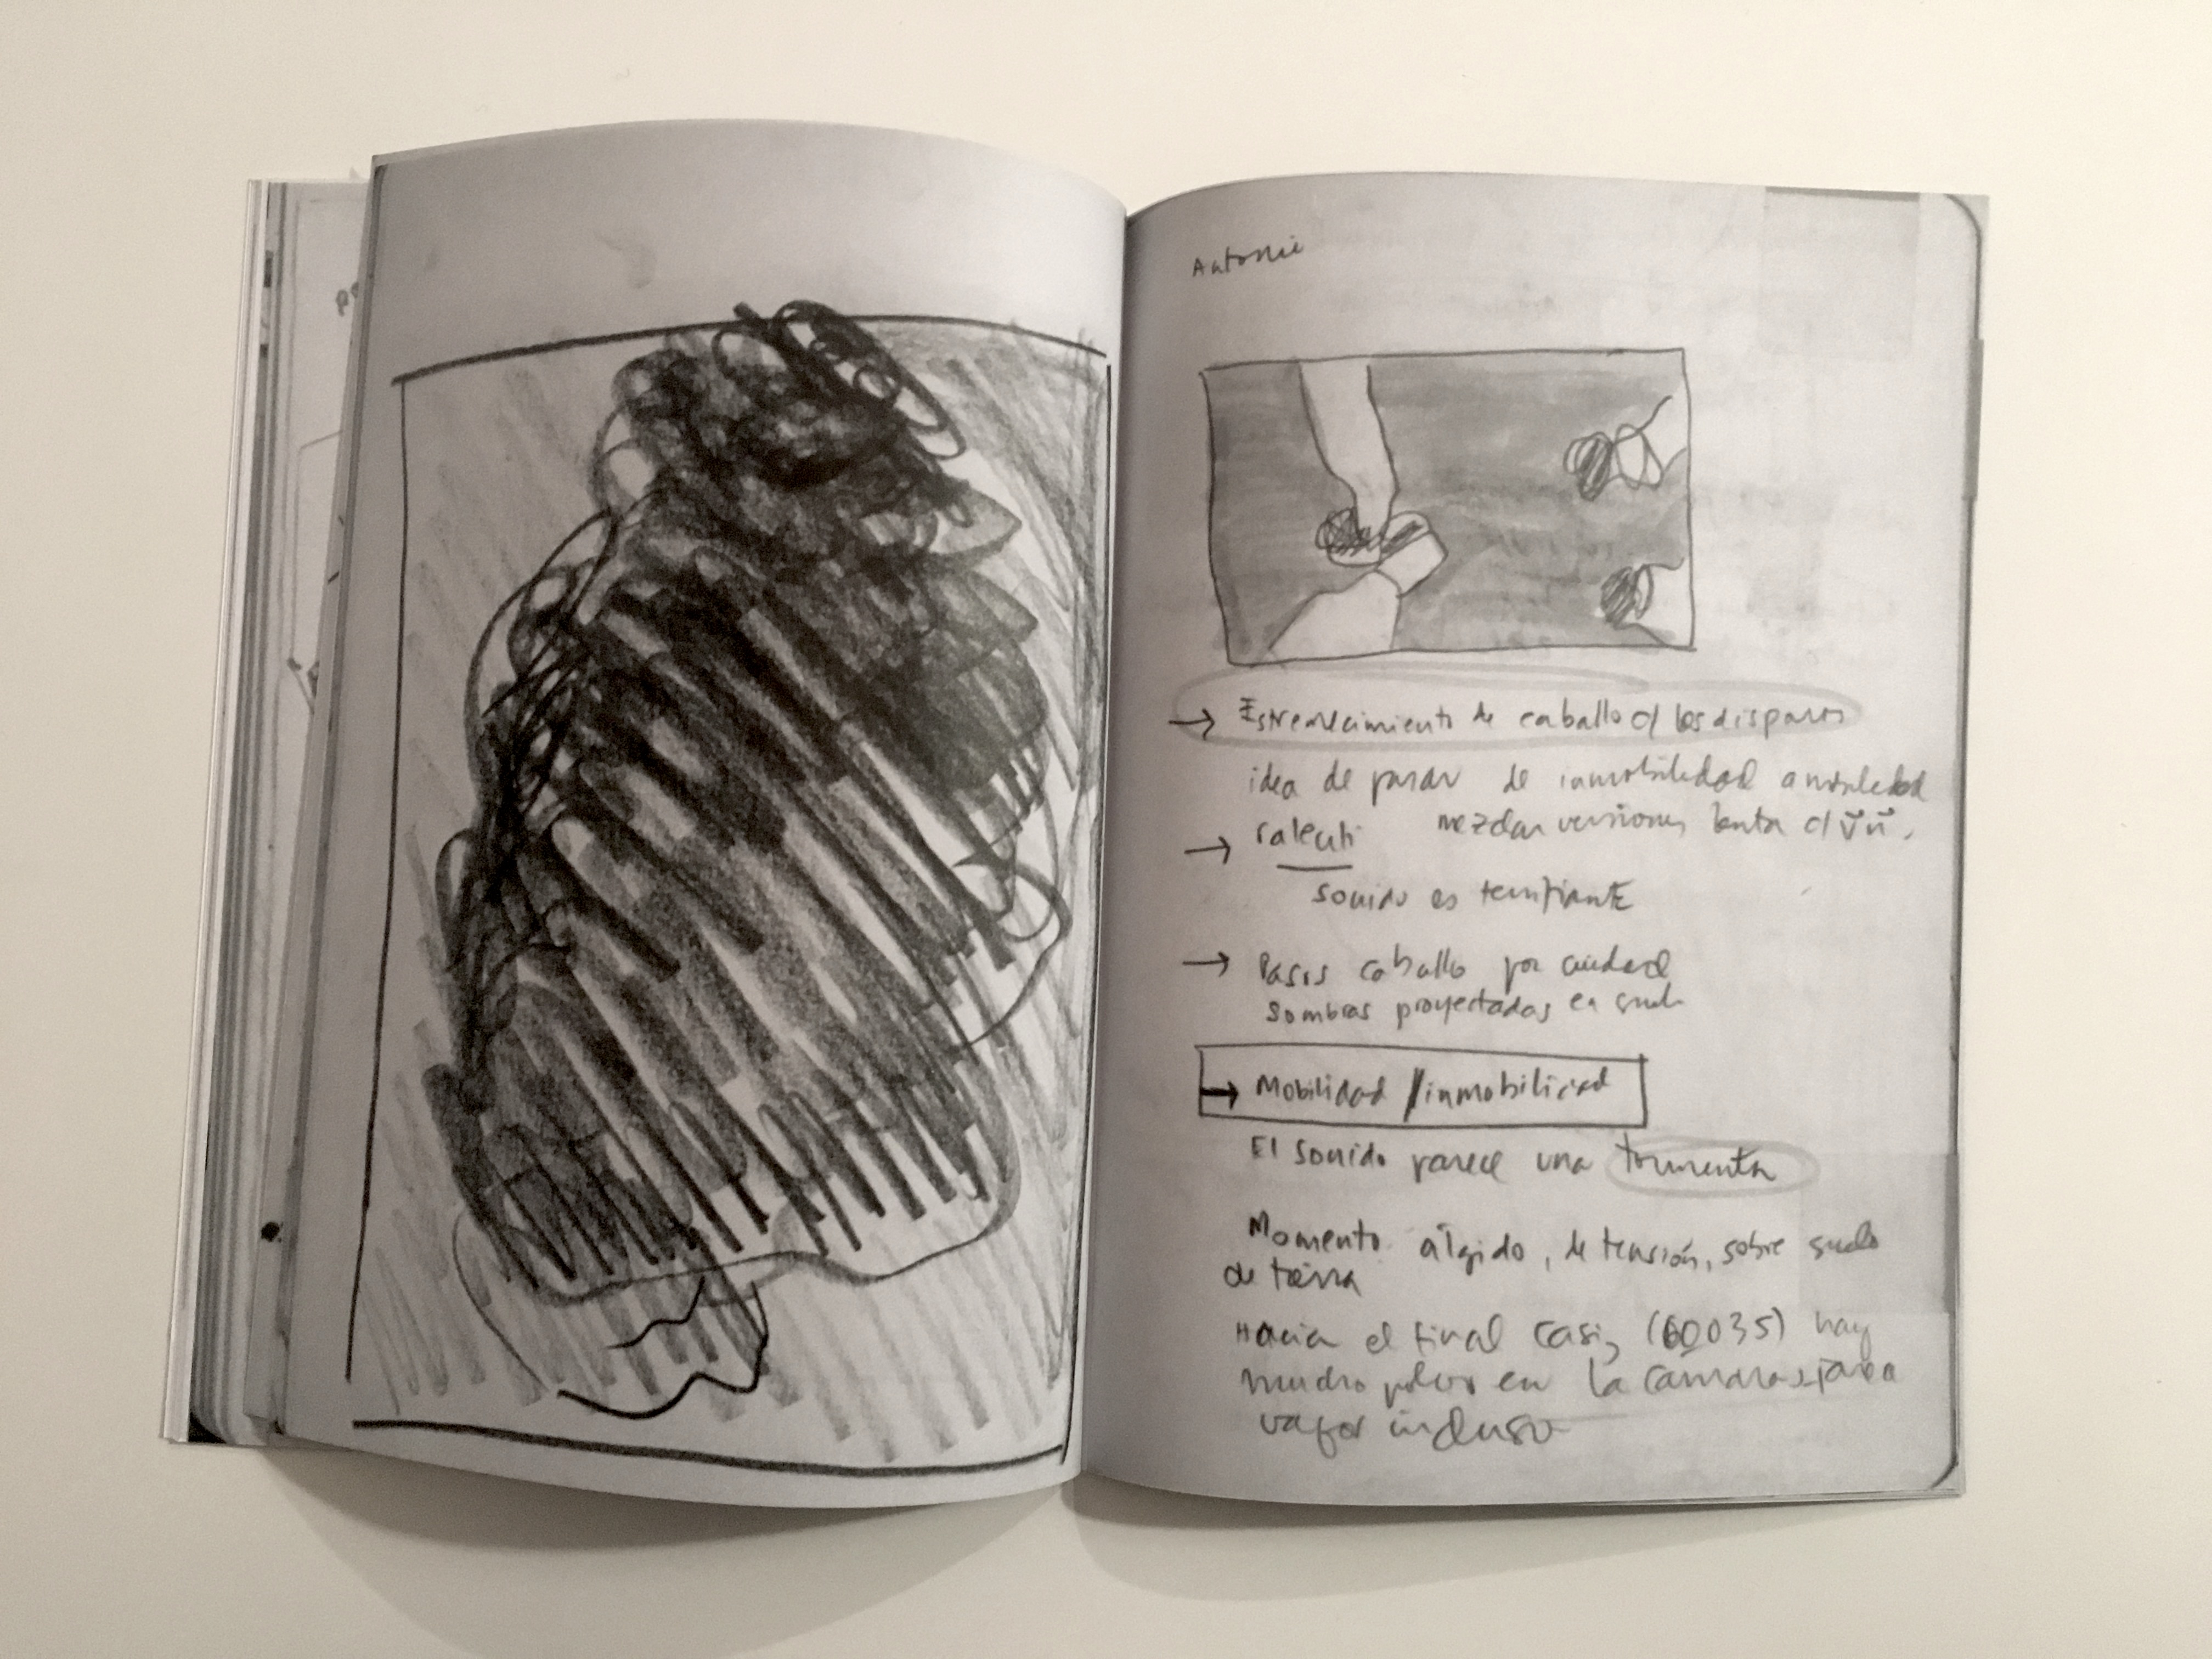 Antonie
→ Estremecimiento de caballo c/ los disparos
idea de pasar de inmobilidad a mobilidad
→ ralenti mezclar versiones lenta c/
sonido es terrifiante
→ Pasos caballo por ciudad
sombras proyectadas en suelo
→ Mobilidad / inmobilidad
El sonido parece una tormenta
Momento álgido, de tensión, sobre suelo
de tierra
Hacia el final casi, (60035) hay
mucho polvo en la cámara, para
vapor incluso